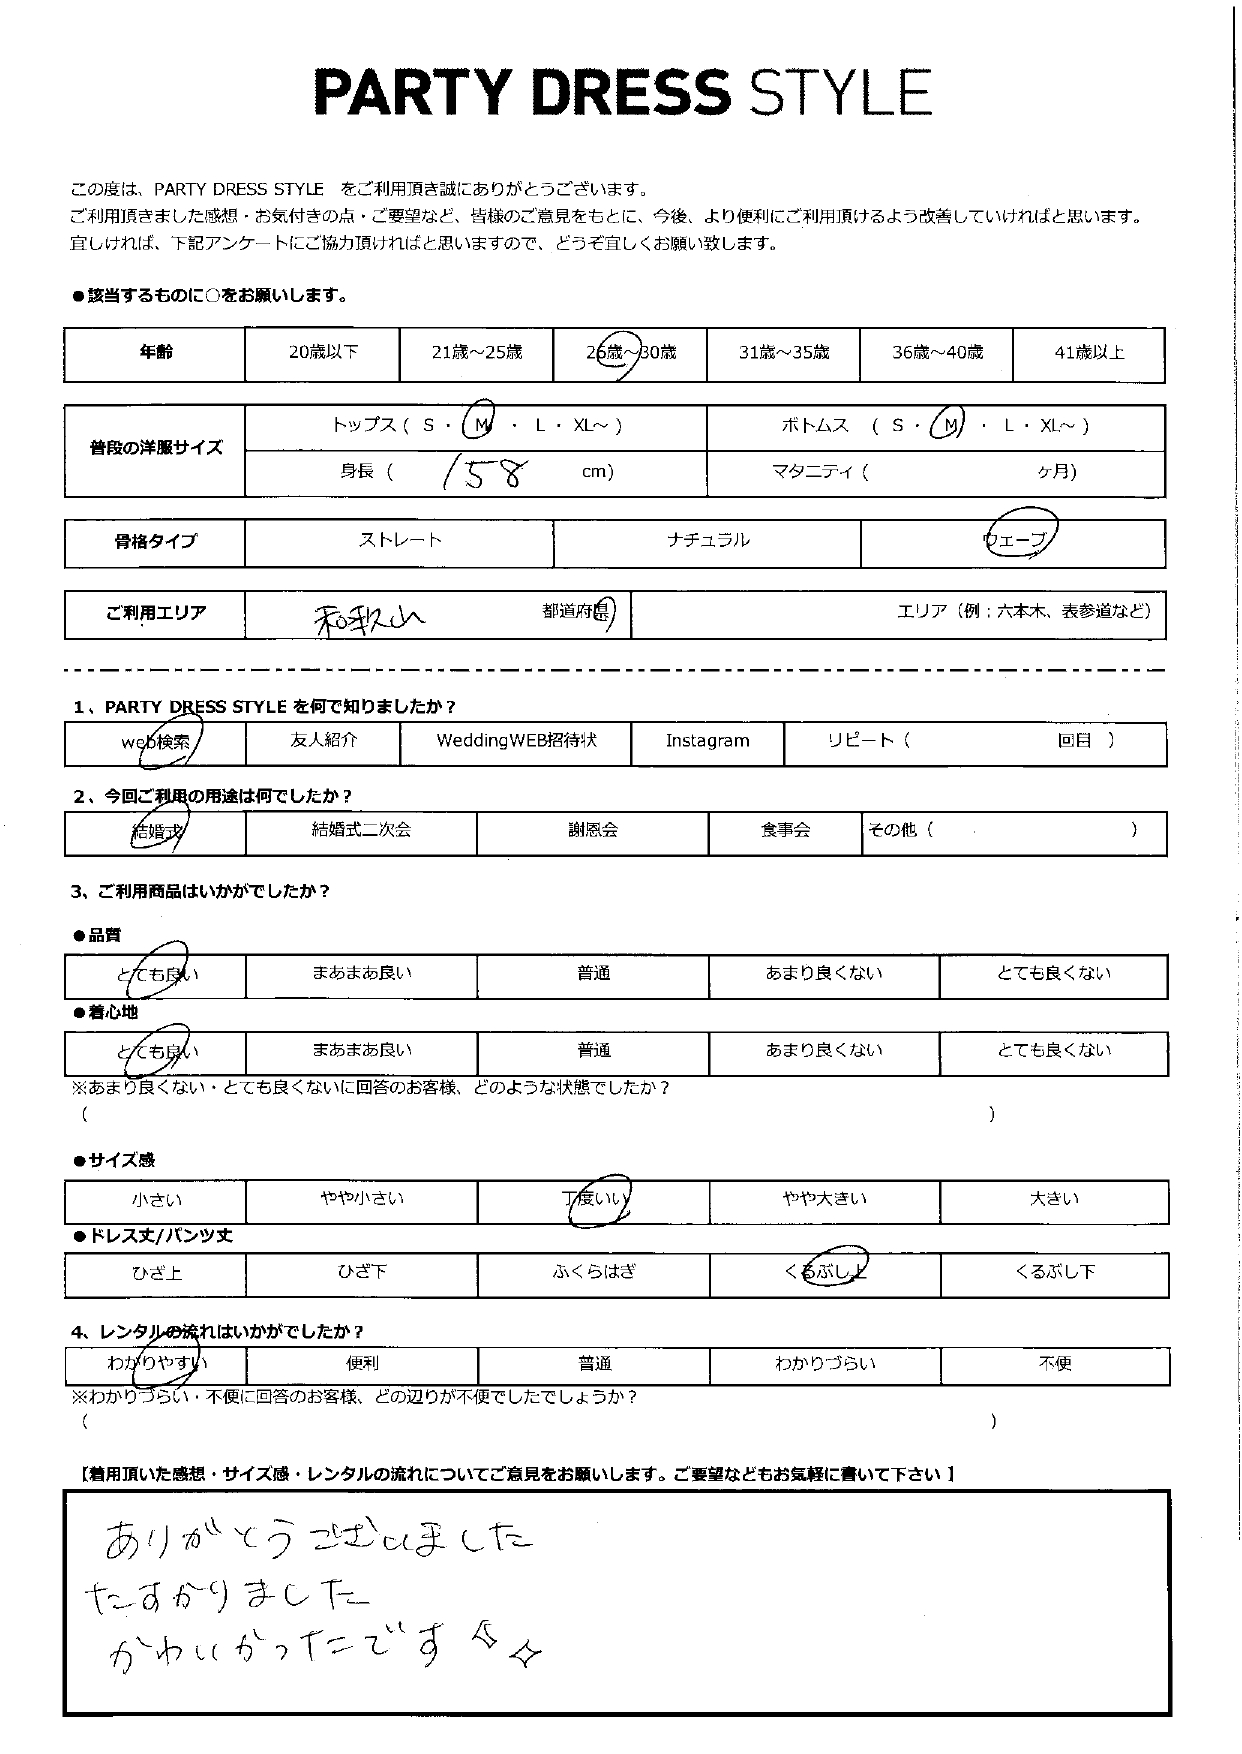 PARTY DRESS STYLE
この度は、PARTY DRESS STYLE をご利用頂き誠にありがとうございます。
ご利用頂きました感想・お気付きの点・ご要望など、皆様のご意見をもとに、今後、より便利にご利用頂けるよう改善していければと思います。
宜しければ、下記アンケートにご協力頂ければと思いますので、どうぞ宜しくお願い致します。
●該当するものに○をお願いします。
年齢 20歳以下 21歳～25歳 26歳～30歳 31歳～35歳 36歳～40歳 41歳以上
普段の洋服サイズ トップス ( S ・ M ・ L ・ XL～ ) ボトムス ( S ・ M ・ L ・ XL～ )
身長 ( 158 cm) マタニティ ( ヶ月)
骨格タイプ ストレート ナチュラル ウェーブ
ご利用エリア 和歌山 都道府県 エリア（例；六本木、表参道など）
1、PARTY DRESS STYLE を何で知りましたか？
web検索 友人紹介 WeddingWEB招待状 Instagram リピート ( 回目 )
2、今回ご利用の用途は何でしたか？
結婚式 結婚式二次会 謝恩会 食事会 その他 ( )
3、ご利用商品はいかがでしたか？
●品質
とても良い まあまあ良い 普通 あまり良くない とても良くない
●着心地
とても良い まあまあ良い 普通 あまり良くない とても良くない
※あまり良くない・とても良くないに回答のお客様、どのような状態でしたか？
( )
●サイズ感
小さい やや小さい 丁度いい やや大きい 大きい
●ドレス丈/パンツ丈
ひざ上 ひざ下 ふくらはぎ くるぶし上 くるぶし下
4、レンタルの流れはいかがでしたか？
わかりやすい 便利 普通 わかりづらい 不便
※わかりづらい・不便に回答のお客様、どの辺りが不便でしたでしょうか？
( )
【着用頂いた感想・サイズ感・レンタルの流れについてご意見をお願いします。ご要望などもお気軽に書いて下さい 】
ありがとうございました
たすかりました
かわいかったです